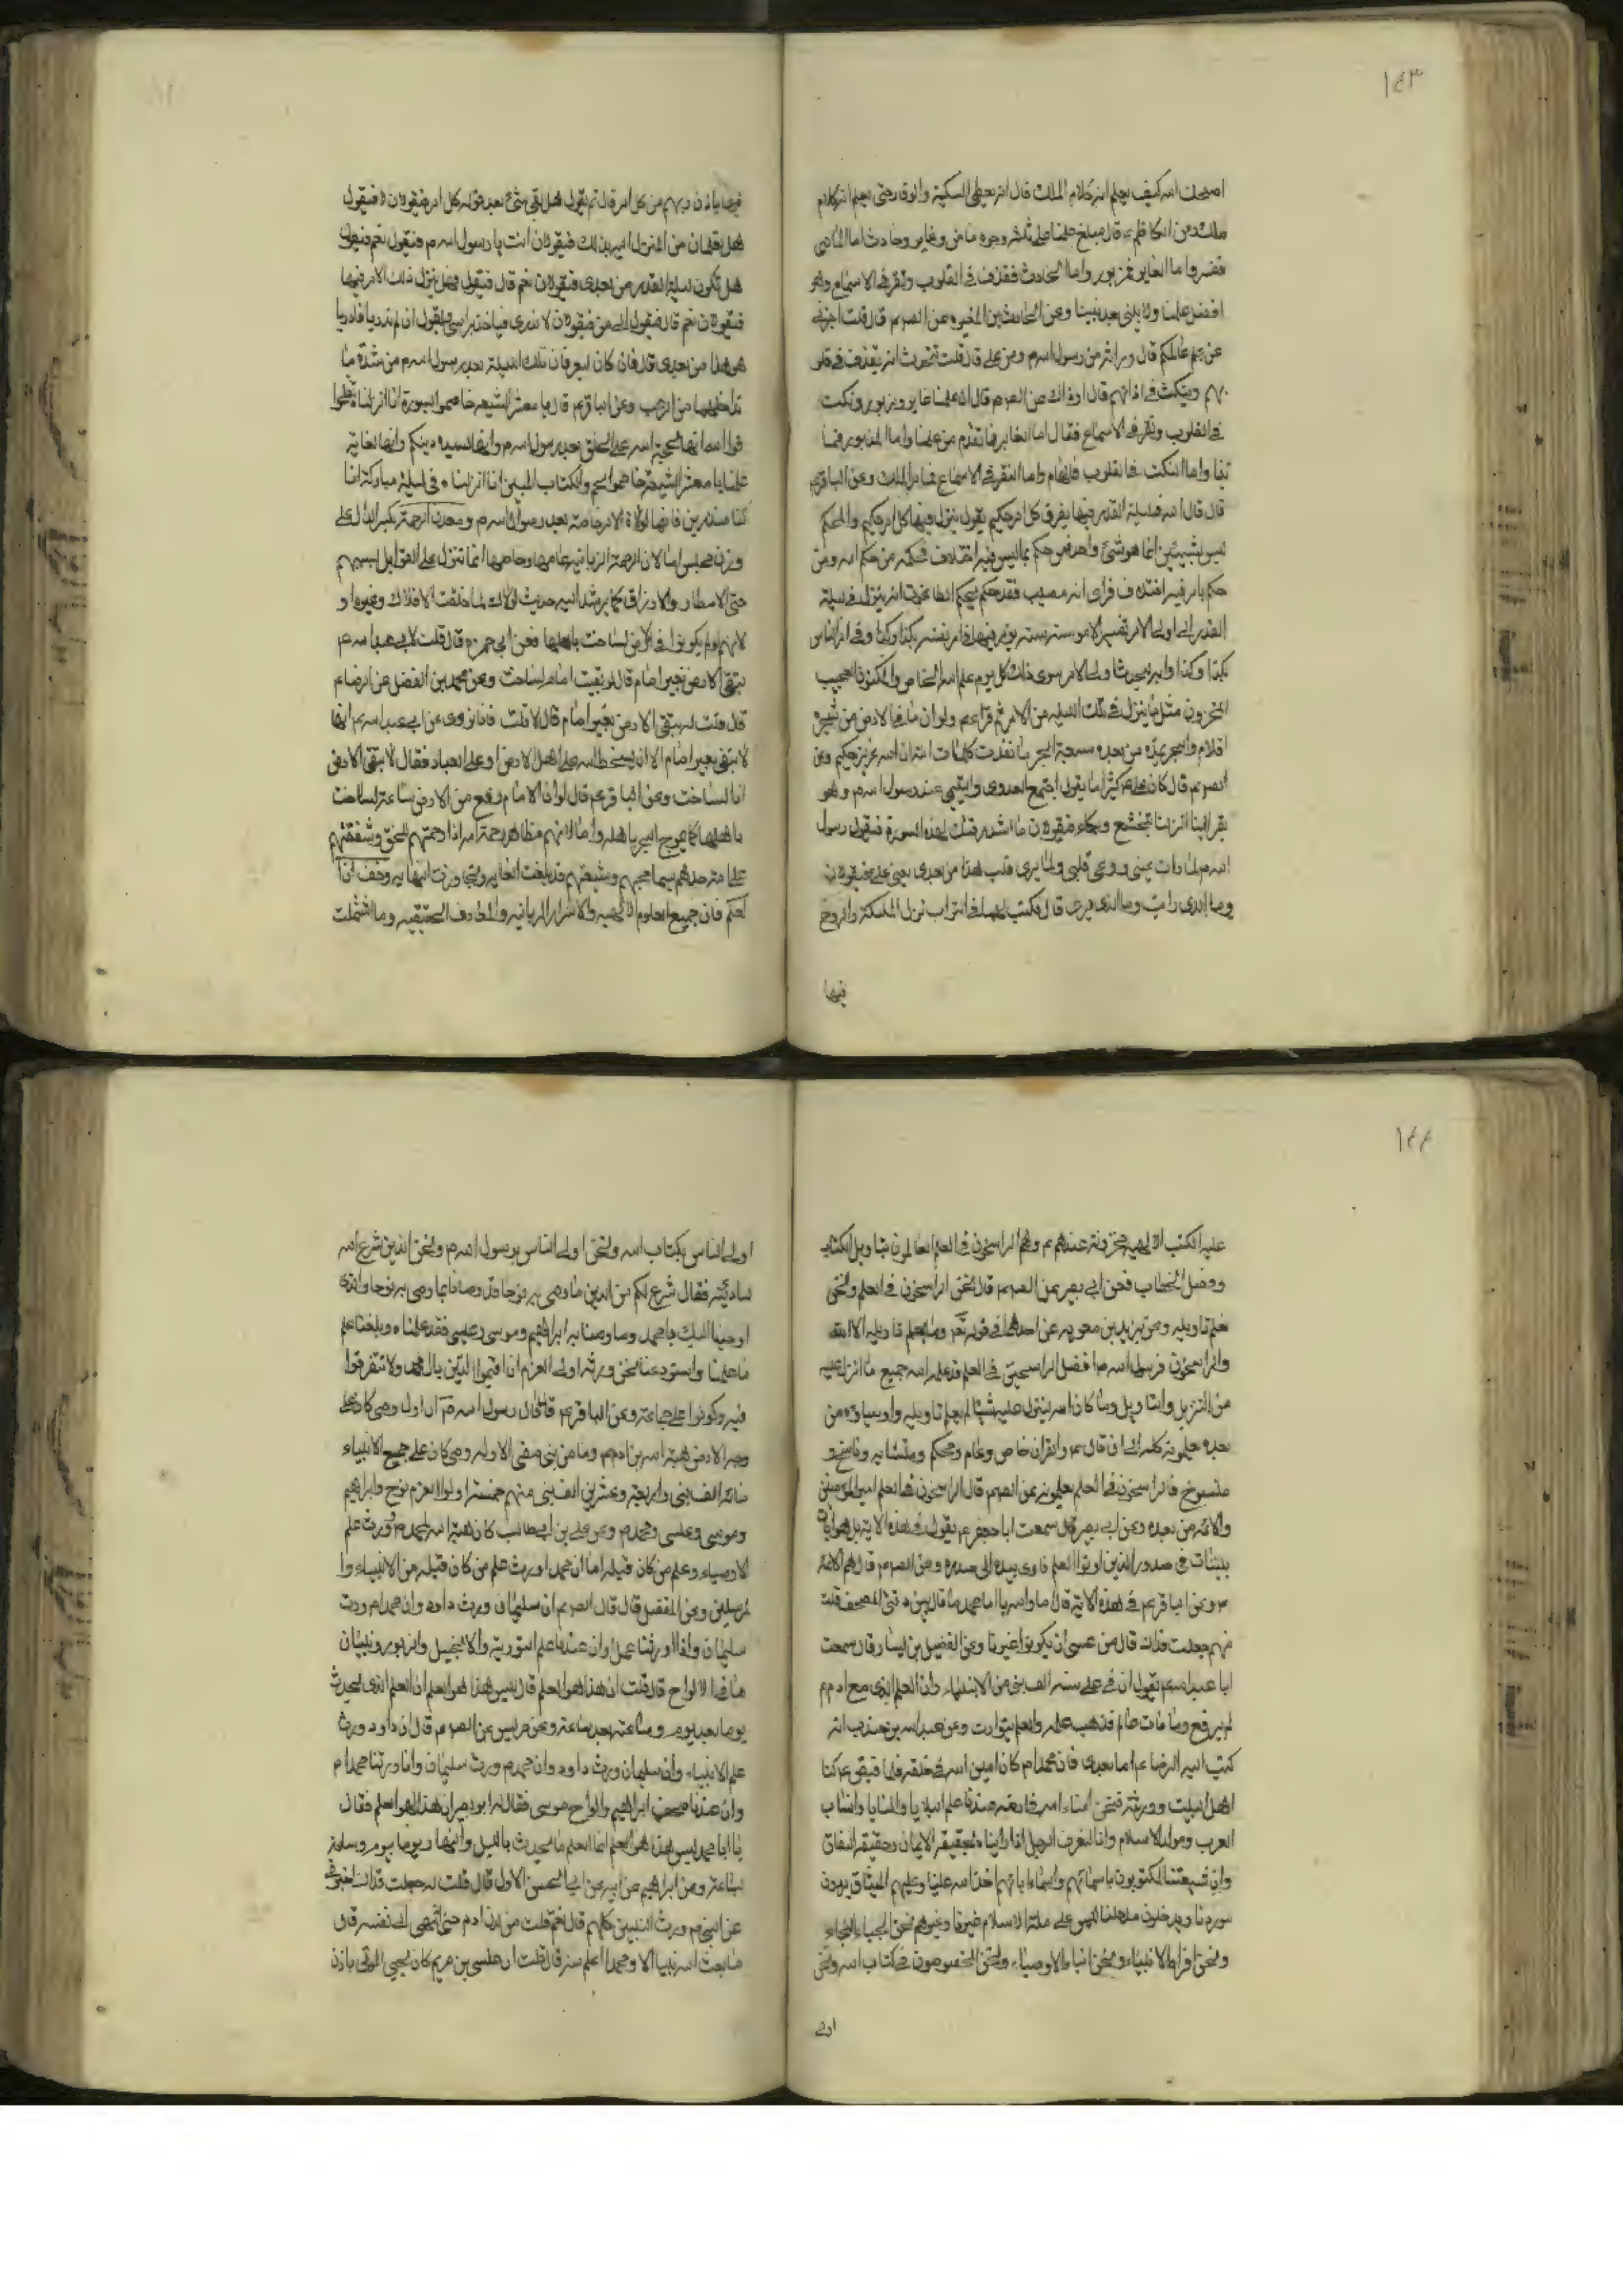 ١٤٣
اصلحك الله كيف يعلم انه كلام الملك قال انه يعطى السكينة والوقار حتى يعلم انه كلام
ملك وعن الكاظم ع قال مبلغ علمنا على ثلثة وجوه ماض وغابر وحادث اما الماضى
فمفسر واما الغابر فمزبور واما الحادث فقذف فى القلوب ونقر فى الاسماع وهو
افضل علمنا ولا نبى بعد نبينا وعن الحارث بن المغيره عن الص ع م قال قلت اخبرنى
عن علم عالمكم قال وراثة من رسول الله ص م ومن على قال قلت نتحدث انه يقذف فى قلو
بهم وينكت فى اذانهم قال او ذاك عن الص م قال ان علمنا غابر ومزبور ونكت
فى القلوب ونقر فى الاسماع فقال اما الغابر فما تقدم من علمنا واما المزبور فما
ياتينا واما النكت فى القلوب فالهام واما النقر فى الاسماع فامر الملك وعن الباقر ع م
قال قال الله فى ليلة القدر فيها يفرق كل امر حكيم يقول ينزل فيها كل امر حكيم والمحكم
ليس بشيئين انما هو شئ واحد فمن حكم بما ليس فيه اختلاف فحكمه من حكم الله ومن
حكم بامر فيه اختلاف فراى انه مصيب فقد حكم بحكم الطاغوت انه لينزل فى ليلة
القدر الى اولى الامر تفسير الامور سنة سنة يؤمر فيها فى امر نفسه بكذا وكذا وفى امر الناس
بكذا وكذا وانه ليحدث لولى الامر سوى ذلك كل يوم علم الله الخاص والمكنون العجيب
المخزون مثل ما ينزل فى تلك الليله من الامر ثم قرا ع م ولو ان ما فى الارض من شجرة
اقلام والبحر يمده من بعده سبعة ابحر ما نفدت كلمات الله ان الله عزيز حكيم وعن
الص ع م قال كان على ع كثيرا ما يقول اجتمع العدوى والتيمى عند رسول الله ص م وهو
يقرا انا انزلناه بتخشع وبكاء فيقولان ما اشد رقتك لهذه السورة فيقول رسول
الله ص م لما رات عينى ووعى قلبى ولما يرى قلب هذا من بعدى يعنى على فيقولان
وما الذى رايت وما الذى يرى قال فيكتب لهما فى التراب تنزل الملئكة والروح
فيها
فيها باذن ربهم من كل امر قال ثم يقول هل بقى شئ بعد قوله كل امر فيقولان لا فيقول
هل تعلمان من المنزل اليه بذلك فيقولان انت يا رسول الله ص م فيقول نعم فيقول
هل تكون ليلة القدر من بعدى فيقولان نعم قال فيقول فهل ينزل ذلك الامر فيها
فيقولان نعم قال فيقول الى من فيقولان لا ندرى فياخذ براسى ويقول ان لم تدريا فادريا
هو هذا من بعدى قال فان كانا ليعرفان تلك الليلة بعد رسول الله ص م من شدة ما
تداخلهما من الرعب وعن الباقر ع م قال يا معشر الشيعه خاصموا بسورة انا انزلناه تفلحوا
فوالله انها لحجة الله على الخلق بعد رسول الله ص م وانها لسيدة دينكم وانها لغاية
علمنا يا معشر الشيعة خاصموا بحم والكتاب المبين انا انزلناه فى ليلة مباركة انا
كنا منذرين فانها لولاة الامر خاصة بعد رسول الله ص م ومعدن الرحمة بكسر الدال على
وزن مجلس اما لان الرحمة الربانيه عامها وخاصها انما تنزل على القوابل بسببهم
حتى الامطار والارزاق كما يرشد اليه حديث لولاك لما خلقت الافلاك وغيره او
لانهم لو لم يكونوا فى الارض لساخت باهلها فعن ابى حمزه قال قلت لابى عبدالله ع م
تبقى الارض بغير امام قال لو بقيت بغير امام لساخت وعن محمد بن الفضل عن الرضا ع م
قال قلت له تبقى الارض بغير امام قال لا قلت فانا نروى عن ابى عبدالله ع م انها
لا تبقى بغير امام الا ان يسخط الله على اهل الارض او على العباد فقال لا تبقى الارض
اذا لساخت وعن الباقر ع م قال لو ان الامام رفع من الارض ساعة لساخت
باهلها كما يموج البحر باهله واما لانهم مظاهر رحمة الله اذ رحمتهم للخلق وشفقتهم
على متوحدهم سيما محبهم وشيعتهم قد بلغت الغايه وتجاوزت النهايه وخزان
العلم فان جميع العلوم الالهيه والاسرار الربانيه والمعارف الحقيقيه وما اشتملت
١٤٤
عليه الكتب الالهيه مخزونة عندهم ع م وهم الراسخون فى العلم العالمون بتاويل الكتاب
وفصل الخطاب فعن ابى بصير عن الص ع م قال نحن الراسخون فى العلم ونحن
نعلم تاويله وعن بريد بن معويه عن احدهما فى قوله تع وما يعلم تاويله الا الله
والراسخون فرسول الله ص م افضل الراسخين فى العلم قد علمه الله جميع ما انزل عليه
من التنزيل والتاويل وما كان الله لينزل عليه شيئا لم يعلمه تاويله واوصياؤه من
بعده يعلمونه كله الى ان قال ع م والقران خاص وعام ومحكم ومتشابه وناسخ و
منسوخ فالراسخون فى العلم يعلمونه عن الص ع م قال الراسخون فى العلم امير المؤمنين
والائمة من بعده وعن ابى بصير قال سمعت ابا جعفر ع م يقول فى هذه الاية بل هو ايات
بينات فى صدور الذين اوتوا العلم فاومى بيده الى صدره وعن الص ع م قال هم الائمة
ع م وعن الباقر ع م فى هذه الاية قال اما والله يا ابا محمد ما قال بين دفتى المصحف قلت
منهم جعلت فداك قال من عسى ان يكونوا غيرنا وعن الفضيل بن يسار قال سمعت
ابا عبدالله ع م يقول ان فى على سنة الف نبى من الانبياء وان العلم الذى مع ادم ع م
لم يرفع وما مات عالم فذهب علمه والعلم يتوارث وعن عبدالله بن جندب انه
كتب اليه الرضا ع م اما بعد فان محمدا ص م كان امين الله فى خلقه فلما قبض ع م كنا
اهل البيت وورثته فنحن امناء الله فى ارضه عندنا علم البلايا والمنايا وانساب
العرب ومولد الاسلام وانا لنعرف الرجل اذا رايناه بحقيقة الايمان وحقيقة النفاق
وان شيعتنا لمكتوبون باسمائهم واسماء ابائهم اخذ الله علينا وعليهم الميثاق يردون
موردنا ويدخلون مدخلنا ليس على ملة الاسلام غيرنا وغيرهم نحن النجباء النجاة
ونحن افراط الانبياء ونحن ابناء الاوصياء ونحن المخصوصون فى كتاب الله ونحن
اولى
اولى الناس بكتاب الله ونحن اولى الناس برسول الله ص م ونحن الذين شرع الله
لنا دينه فقال شرع لكم من الدين ما وصى به نوحا قد وصانا بما وصى به نوحا والذى
اوحينا اليك يا محمد وما وصينا به ابراهيم وموسى وعيسى فقد علمنا وبلغنا علم
ما علمنا واستودعنا نحن ورثة اولى العزم ان اقيموا الدين يال محمد ولا تتفرقوا
فيه وكونوا على جماعة وعن الباقر ع م قال قال رسول الله ص م ان اول وصى كان على
وجه الارض هبة الله بن ادم ع م وما من نبى مضى الا وله وصى كان على جميع الانبياء
مائة الف نبى واربعة وعشرين الف نبى منهم خمسة اولوا العزم نوح وابراهيم
وموسى وعيسى ومحمد ص م وعن على بن ابيطالب كان هبة الله لمحمد ص م وورث علم
الاوصياء وعلم من كان قبله اما ان محمدا ورث علم من كان قبله من الانبياء وا
لمرسلين وعن المفضل قال قال الص ع م ان سليمان ورث داود وان محمدا ص م ورث
سليمان وانا ورثنا محمدا وان عندنا علم التوريه والانجيل والزبور وتبيان
ما فى الالواح قال قلت ان هذا لهو العلم قال ليس هذا هو العلم ان العلم الذى يحدث
يوما بعد يوم وساعة بعد ساعة وعن ضريس عن الص ع م قال ان داود ورث
علم الانبياء وان سليمان ورث داود وان محمد ص م ورث سليمان وانا ورثنا محمدا ص م
وان عندنا صحف ابراهيم والواح موسى فقال له ابو بصير ان هذا لهو العلم فقال
يا ابا محمد ليس هذا هو العلم انما العلم ما يحدث بالليل والنهار ويوما بيوم وساعة
بساعة وعن ابراهيم عن ابيه عن ابى الحسن الاول قال قلت له جعلت فداك اخبرنى
عن النبى ص م ورث النبيين كلهم قال نعم قلت من لدن ادم حتى انتهى الى نفسه قال
ما بعث الله نبيا الا ومحمد اعلم منه قال قلت ان عيسى بن مريم كان يحيى الموتى باذن